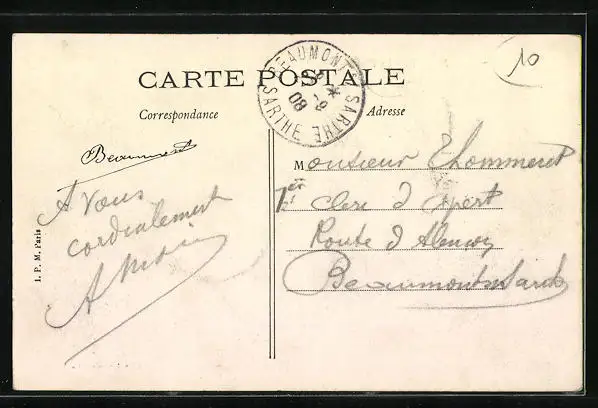 10
CARTE POSTALE
BEAUMONT-S-SARTHE
* SARTHE
08
Correspondance
Adresse
Beaumont
Monsieur Thommeret
A vous
1er Clerc d'Expert
cordialement
Route d'Alençon
Beaumont s Sarthe
I. P. M. Paris